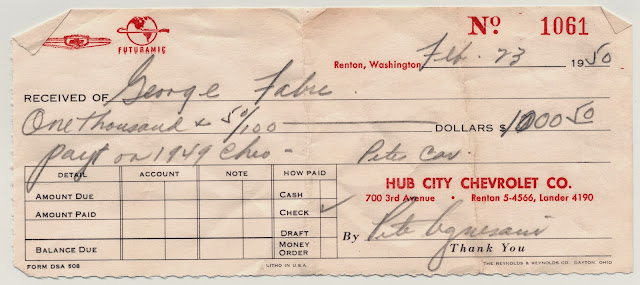 FUTURAMIC
Nº 1061
Renton, Washington Feb. 23 1950
RECEIVED OF George Fabre
One thousand & 50/100 DOLLARS $ 1000 50
payt on 1949 Chev - Pete Car.
DETAIL ACCOUNT NOTE HOW PAID
AMOUNT DUE CASH
AMOUNT PAID CHECK ✓
DRAFT
BALANCE DUE MONEY ORDER
HUB CITY CHEVROLET CO.
700 3rd Avenue • Renton 5-4566, Lander 4190
By Pete Agnesani
Thank You
FORM DSA 508 LITHO IN U.S.A. THE REYNOLDS & REYNOLDS CO. DAYTON, OHIO